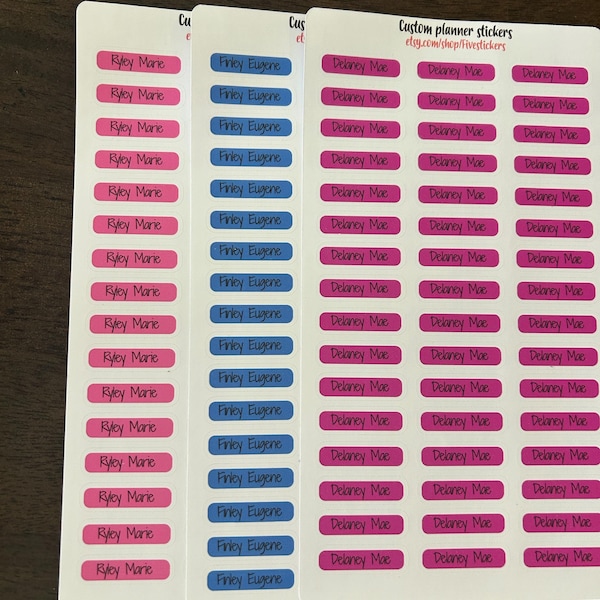 Cus
Ryley Marie
Ryley Marie
Ryley Marie
Ryley Marie
Ryley Marie
Ryley Marie
Ryley Marie
Ryley Marie
Ryley Marie
Ryley Marie
Ryley Marie
Ryley Marie
Ryley Marie
Ryley Marie
Ryley Marie
Ryley Marie
Cus
Finley Eugene
Finley Eugene
Finley Eugene
Finley Eugene
Finley Eugene
Finley Eugene
Finley Eugene
Finley Eugene
Finley Eugene
Finley Eugene
Finley Eugene
Finley Eugene
Finley Eugene
Finley Eugene
Finley Eugene
Finley Eugene
Finley Eugene
Custom planner stickers
etsy.com/shop/Fivestickers
Delaney Mae Delaney Mae Delaney Mae
Delaney Mae Delaney Mae Delaney Mae
Delaney Mae Delaney Mae Delaney Mae
Delaney Mae Delaney Mae Delaney Mae
Delaney Mae Delaney Mae Delaney Mae
Delaney Mae Delaney Mae Delaney Mae
Delaney Mae Delaney Mae Delaney Mae
Delaney Mae Delaney Mae Delaney Mae
Delaney Mae Delaney Mae Delaney Mae
Delaney Mae Delaney Mae Delaney Mae
Delaney Mae Delaney Mae Delaney Mae
Delaney Mae Delaney Mae Delaney Mae
Delaney Mae Delaney Mae Delaney Mae
Delaney Mae Delaney Mae Delaney Mae
Delaney Mae Delaney Mae Delaney Mae
Delaney Mae Delaney Mae Delaney Mae